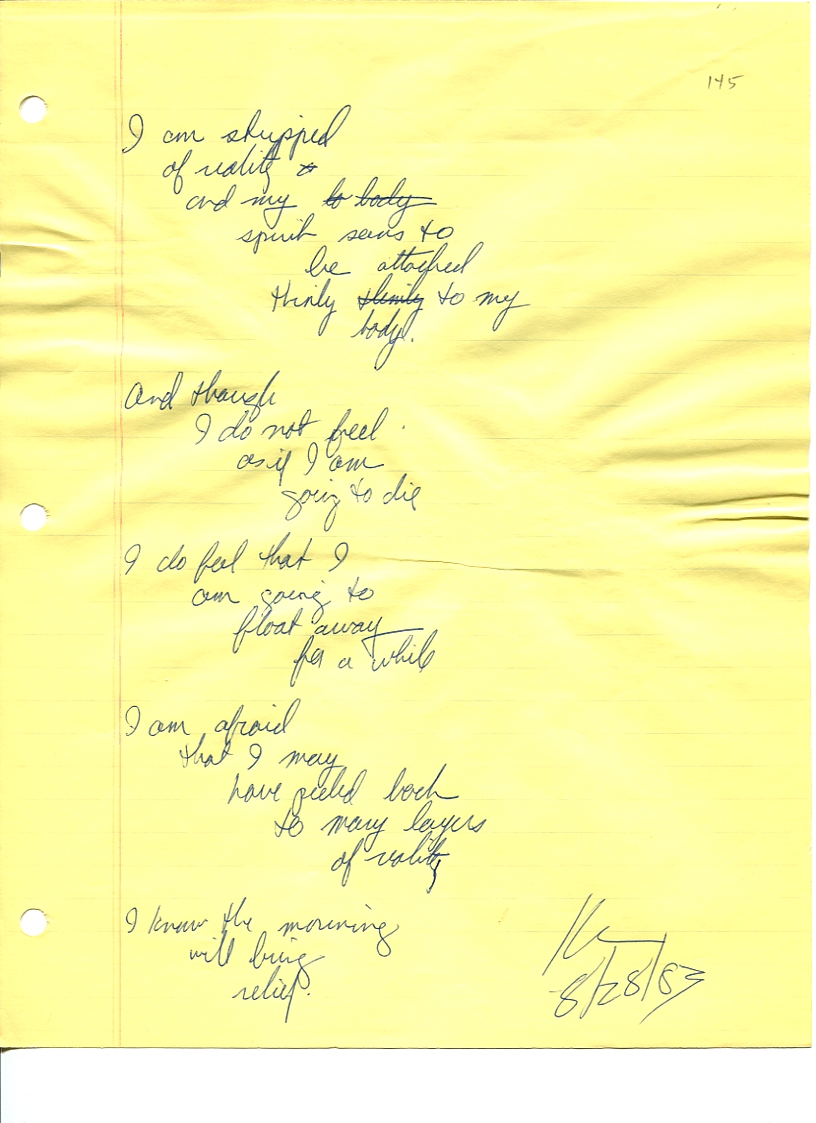 145
I am stripped
of reality
and my to body
spirit seems to
be attached
thinly thinly to my
body.
And though
I do not feel
as if I am
going to die
I do feel that I
am going to
float away
for a while
I am afraid
that I may
have peeled back
to many layers
of reality
I know the morning
will bring
relief.
8/28/83